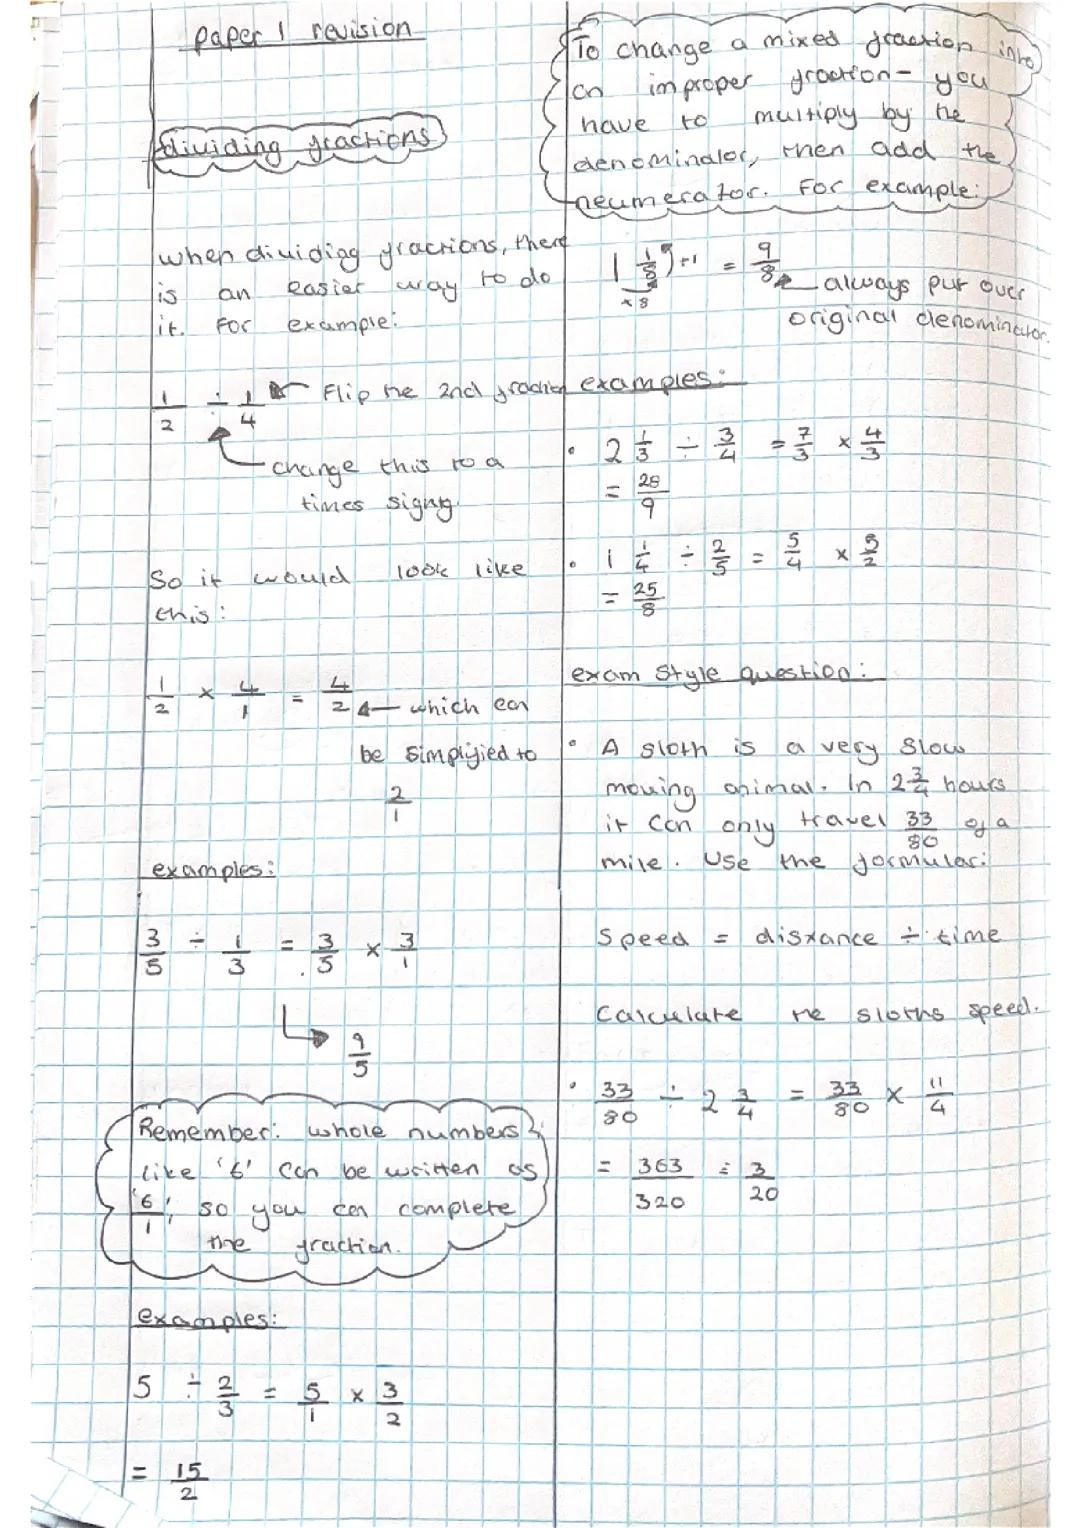 paper 1 revision
dividing fractions
when dividing fractions, there
is an easier way to do
it. For example:
1/2 ÷ 1/4 Flip the 2nd fraction
change this to a
times sign
So it would look like
this:
1/2 × 4/1 = 4/2 which can
be simplified to
2/1
examples:
3/5 ÷ 1/3 = 3/5 × 3/1
9/5
Remember: whole numbers
like '6' can be written as
'6/1', so you can complete
the fraction.
examples:
5 ÷ 2/3 = 5/1 × 3/2
= 15/2
To change a mixed fraction into
an improper fraction- you
have to multiply by the
denominator, then add the
neumerator. For example:
1 1/8 +1 = 9/8 always put over
×8 original denominator.
examples:
• 2 1/3 ÷ 3/4 = 7/3 × 4/3
= 28/9
• 1 1/4 ÷ 2/5 = 5/4 × 5/2
= 25/8
exam style question:
• A sloth is a very slow
moving animal. In 2 3/4 hours
it can only travel 33/80 of a
mile. Use the formular:
Speed = distance ÷ time
Calculate the sloths speed.
• 33/80 ÷ 2 3/4 = 33/80 × 11/4
= 363/320 = 3/20